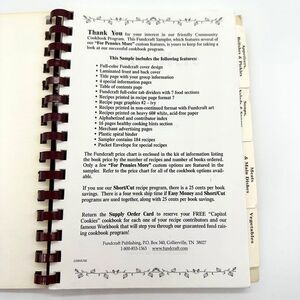 Thank You for your interest in our friendly Community
Cookbook Program. This Fundcraft Sampler, which features several of
our "For Pennies More" custom features, is yours to keep for taking a
look at our successful cookbook program.
This Sample includes the following features:
• Full-color Fundcraft cover design
• Laminated front and back cover
• Title page with your group information
• 4 special information pages
• Table of contents page
• Fundcraft full-color tab dividers with 7 food sections
• Recipes printed in recipe page format 7
• Recipe page graphics #2 - ivy
• Recipes printed in non-continued format with Fundcraft art
• Recipes printed on heavy 60# white, acid-free paper
• Alphabetized and contributor index
• 16 pages healthy cooking hints section
• Merchant advertising pages
• Plastic spiral binder
• Sampler contains 184 recipes
• Packet Envelope for special recipes
The Fundcraft price chart is enclosed in the kit of information listing
the book price by the number of recipes and number of books ordered.
Only a few "For Pennies More" custom options are featured in the
sampler. Refer to the price chart for all of the cookbook options
available.
If you use our Short/Cut recipe program, there is a 25 cents per book
savings. There is a four week ship time if Easy Money and Short/Cut
programs are used together, along with 25 cents per book savings.
Return the Supply Order Card to reserve your FREE "Capitol
Cookies" cookbook for each one of your recipe contributors and our
famous Workbook that will step you through our guaranteed fund raising
cookbook program!
Fundcraft Publishing, P.O. Box 340, Collierville, TN 38027
1-800-853-1363 www.fundcraft.com
Meats
& Main Dishes
Vegetables